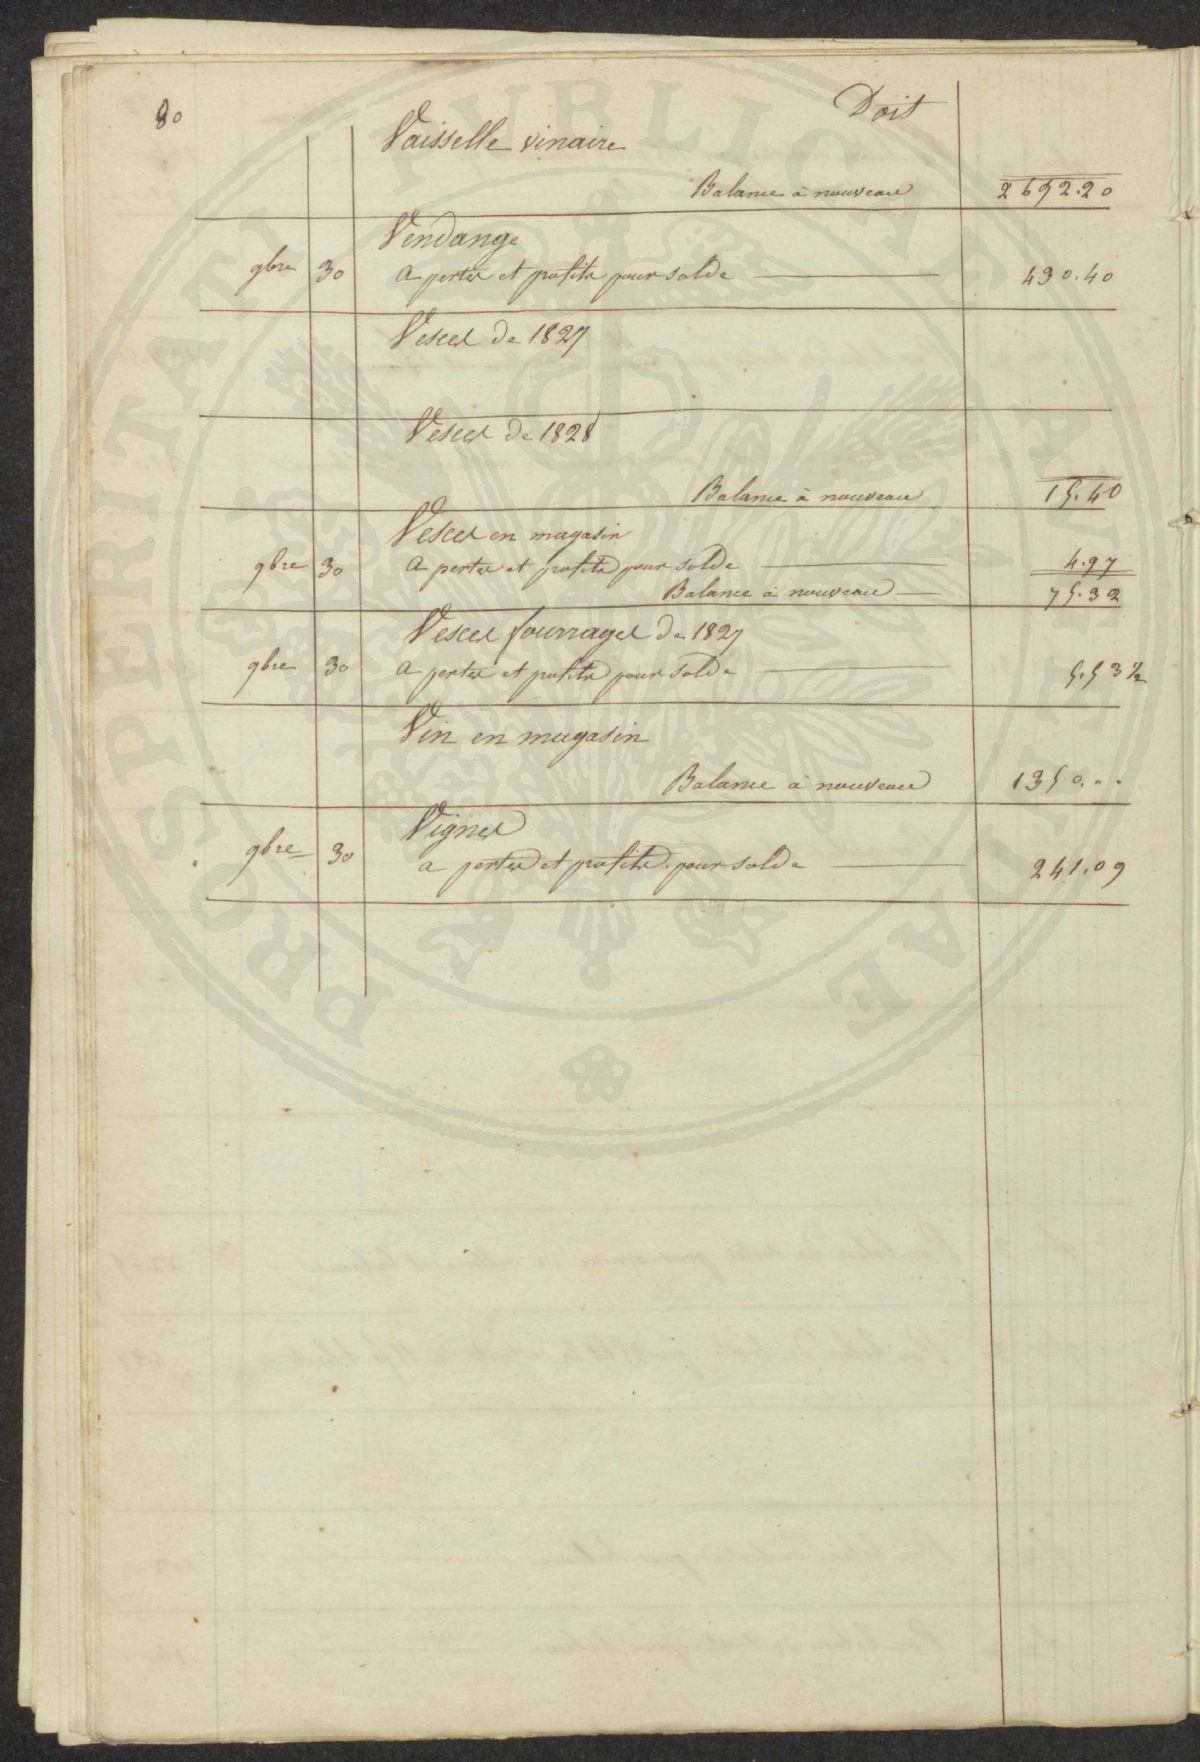 80
Doit
Vaisselle vinaire
Balance à nouveau 2652.20
Vendange
9bre 30 a pertes et profits pour solde 430.40
Vesces de 1827
Vesces de 1828
Balance à nouveau 15.40
Vesces en magasin
9bre 30 a pertes et profits pour solde 4.97
Balance à nouveau 75.32
Vesces fourrages de 1827
9bre 30 a pertes et profits pour solde 5.53½
Vin en magasin
Balance à nouveau 1350. " "
Vignes
9bre 30 a pertes et profits pour solde 241.09
PROSPERITATI PUBLICAE AUGENDAE